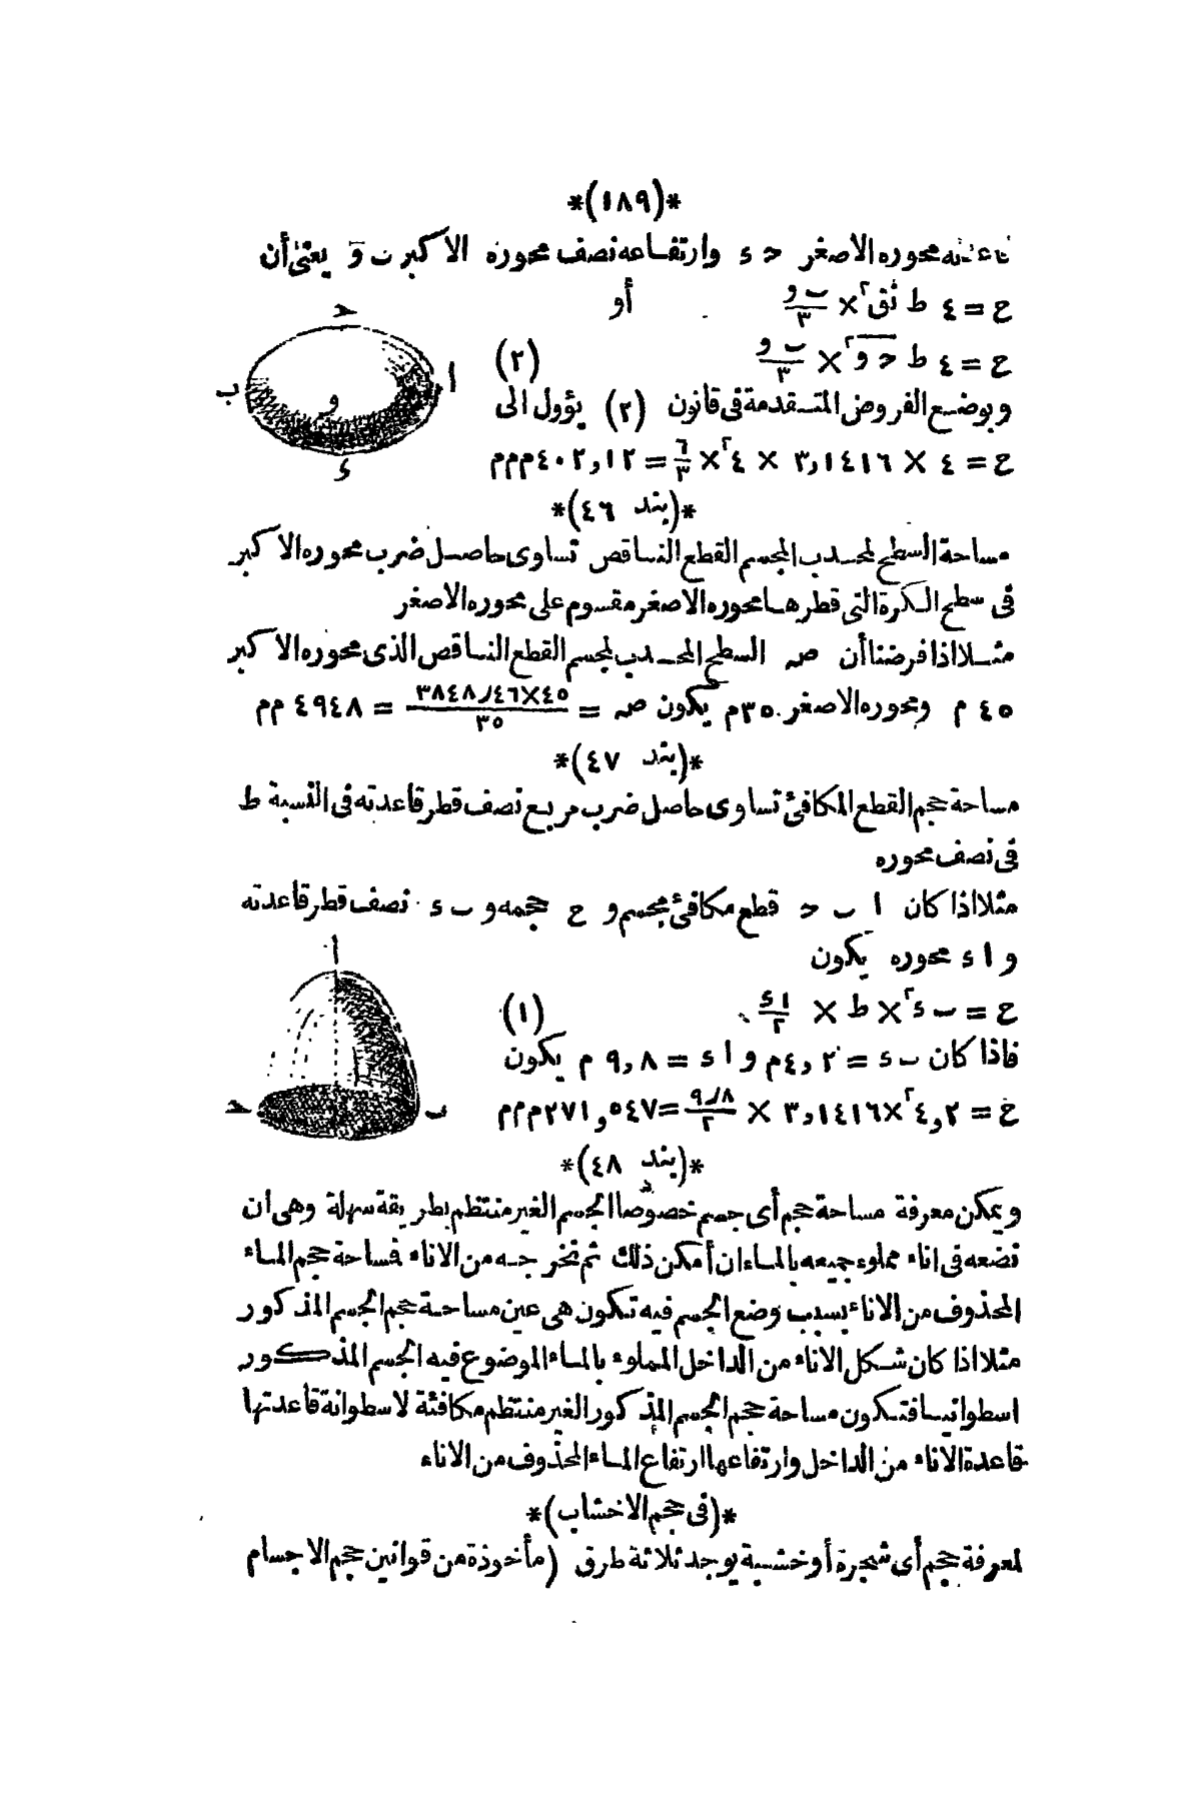 *(١٨٩)*
قاعدته محوره الاصغر حـ ء وارتفاعه نصف محوره الاكبر ب و يعنى أن
ح = ٤ ط نق٢ × ب و/٣ أو
ح = ٤ ط حـ و٢ × ب و/٣ (٢)
وبوضع الفروض المتقدمة فى قانون (٢) يؤول الى
ح = ٤ × ٣,١٤١٦ × ٤٢ × ٦/٣ = ٤٠٢,١٢ م م م
حـ
ا
ب
و
ء
*(بند ٤٦)*
مساحة السطح لمحدب المجسم القطع الناقص تساوى حاصل ضرب محوره الاكبر
فى سطح الكرة التى قطرها محوره الاصغر مقسوم على محوره الاصغر
مثلا اذا فرضنا أن صـ السطح المحدب لمجسم القطع الناقص الذى محوره الاكبر
٤٥ م ومحوره الاصغر ٣٥ م يكون صـ = ٤٥×٣٨٤٨,٤٦/٣٥ = ٤٩٤٨ م م
*(بند ٤٧)*
مساحة حجم القطع المكافئ تساوى حاصل ضرب مربع نصف قطر قاعدته فى النسبة ط
فى نصف محوره
مثلا اذا كان ا ب حـ قطع مكافئ مجسم و ح حجمه و ب ء نصف قطر قاعدته
و ا ء محوره يكون
ح = ب ء٢ × ط × ا ء/٢ (١)
فاذا كان ب ء = ٤,٢ م و ا ء = ٩,٨ م يكون
ح = ٤,٢٢ × ٣,١٤١٦ × ٩,٨/٢ = ٢٧١,٥٤٧ م م م
ا
ب
حـ
*(بند ٤٨)*
ويمكن معرفة مساحة حجم أى جسم خصوصا الجسم الغير منتظم بطريقة سهلة وهى ان
نضعه فى اناء مملوء جميعه بالماء ان أمكن ذلك ثم نخرجه من الاناء فمساحة حجم الماء
المحذوف من الاناء بسبب وضع الجسم فيه تكون هى عين مساحة حجم الجسم المذكور
مثلا اذا كان شكل الاناء من الداخل المملوء بالماء الموضوع فيه الجسم المذكور
اسطوانيا فتكون مساحة حجم الجسم المذكور الغير منتظم مكافئة لاسطوانة قاعدتها
قاعدة الاناء من الداخل وارتفاعها ارتفاع الماء المحذوف من الاناء
*(فى حجم الاخشاب)*
لمعرفة حجم أى شجرة أو خشبة يوجد ثلاثة طرق (مأخوذة من قوانين حجم الاجسام